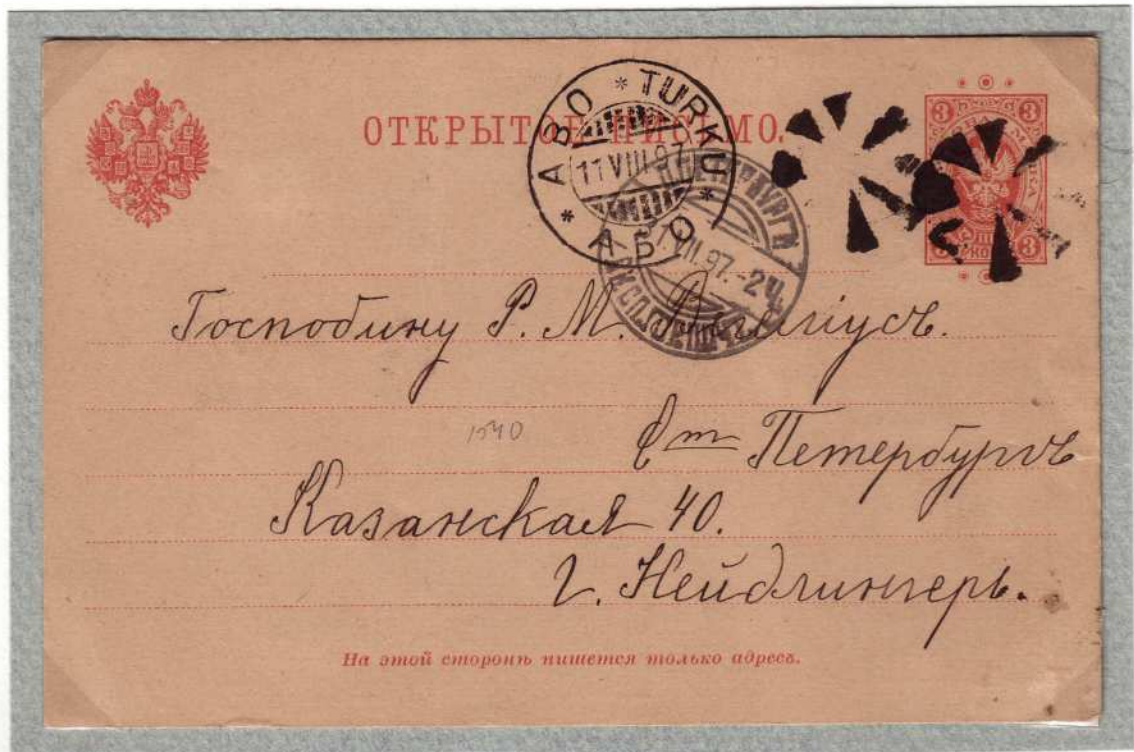 ОТКРЫТОЕ ПИСЬМО.
ABO * TURKU * АБО *
11 VIII 97
3 3
3 3
97.-2Ч.
Господину Р. М.
Ст Петербургъ
1540
Казанская 40.
Г. Нейдлингеръ.
На этой сторонѣ пишется только адресъ.